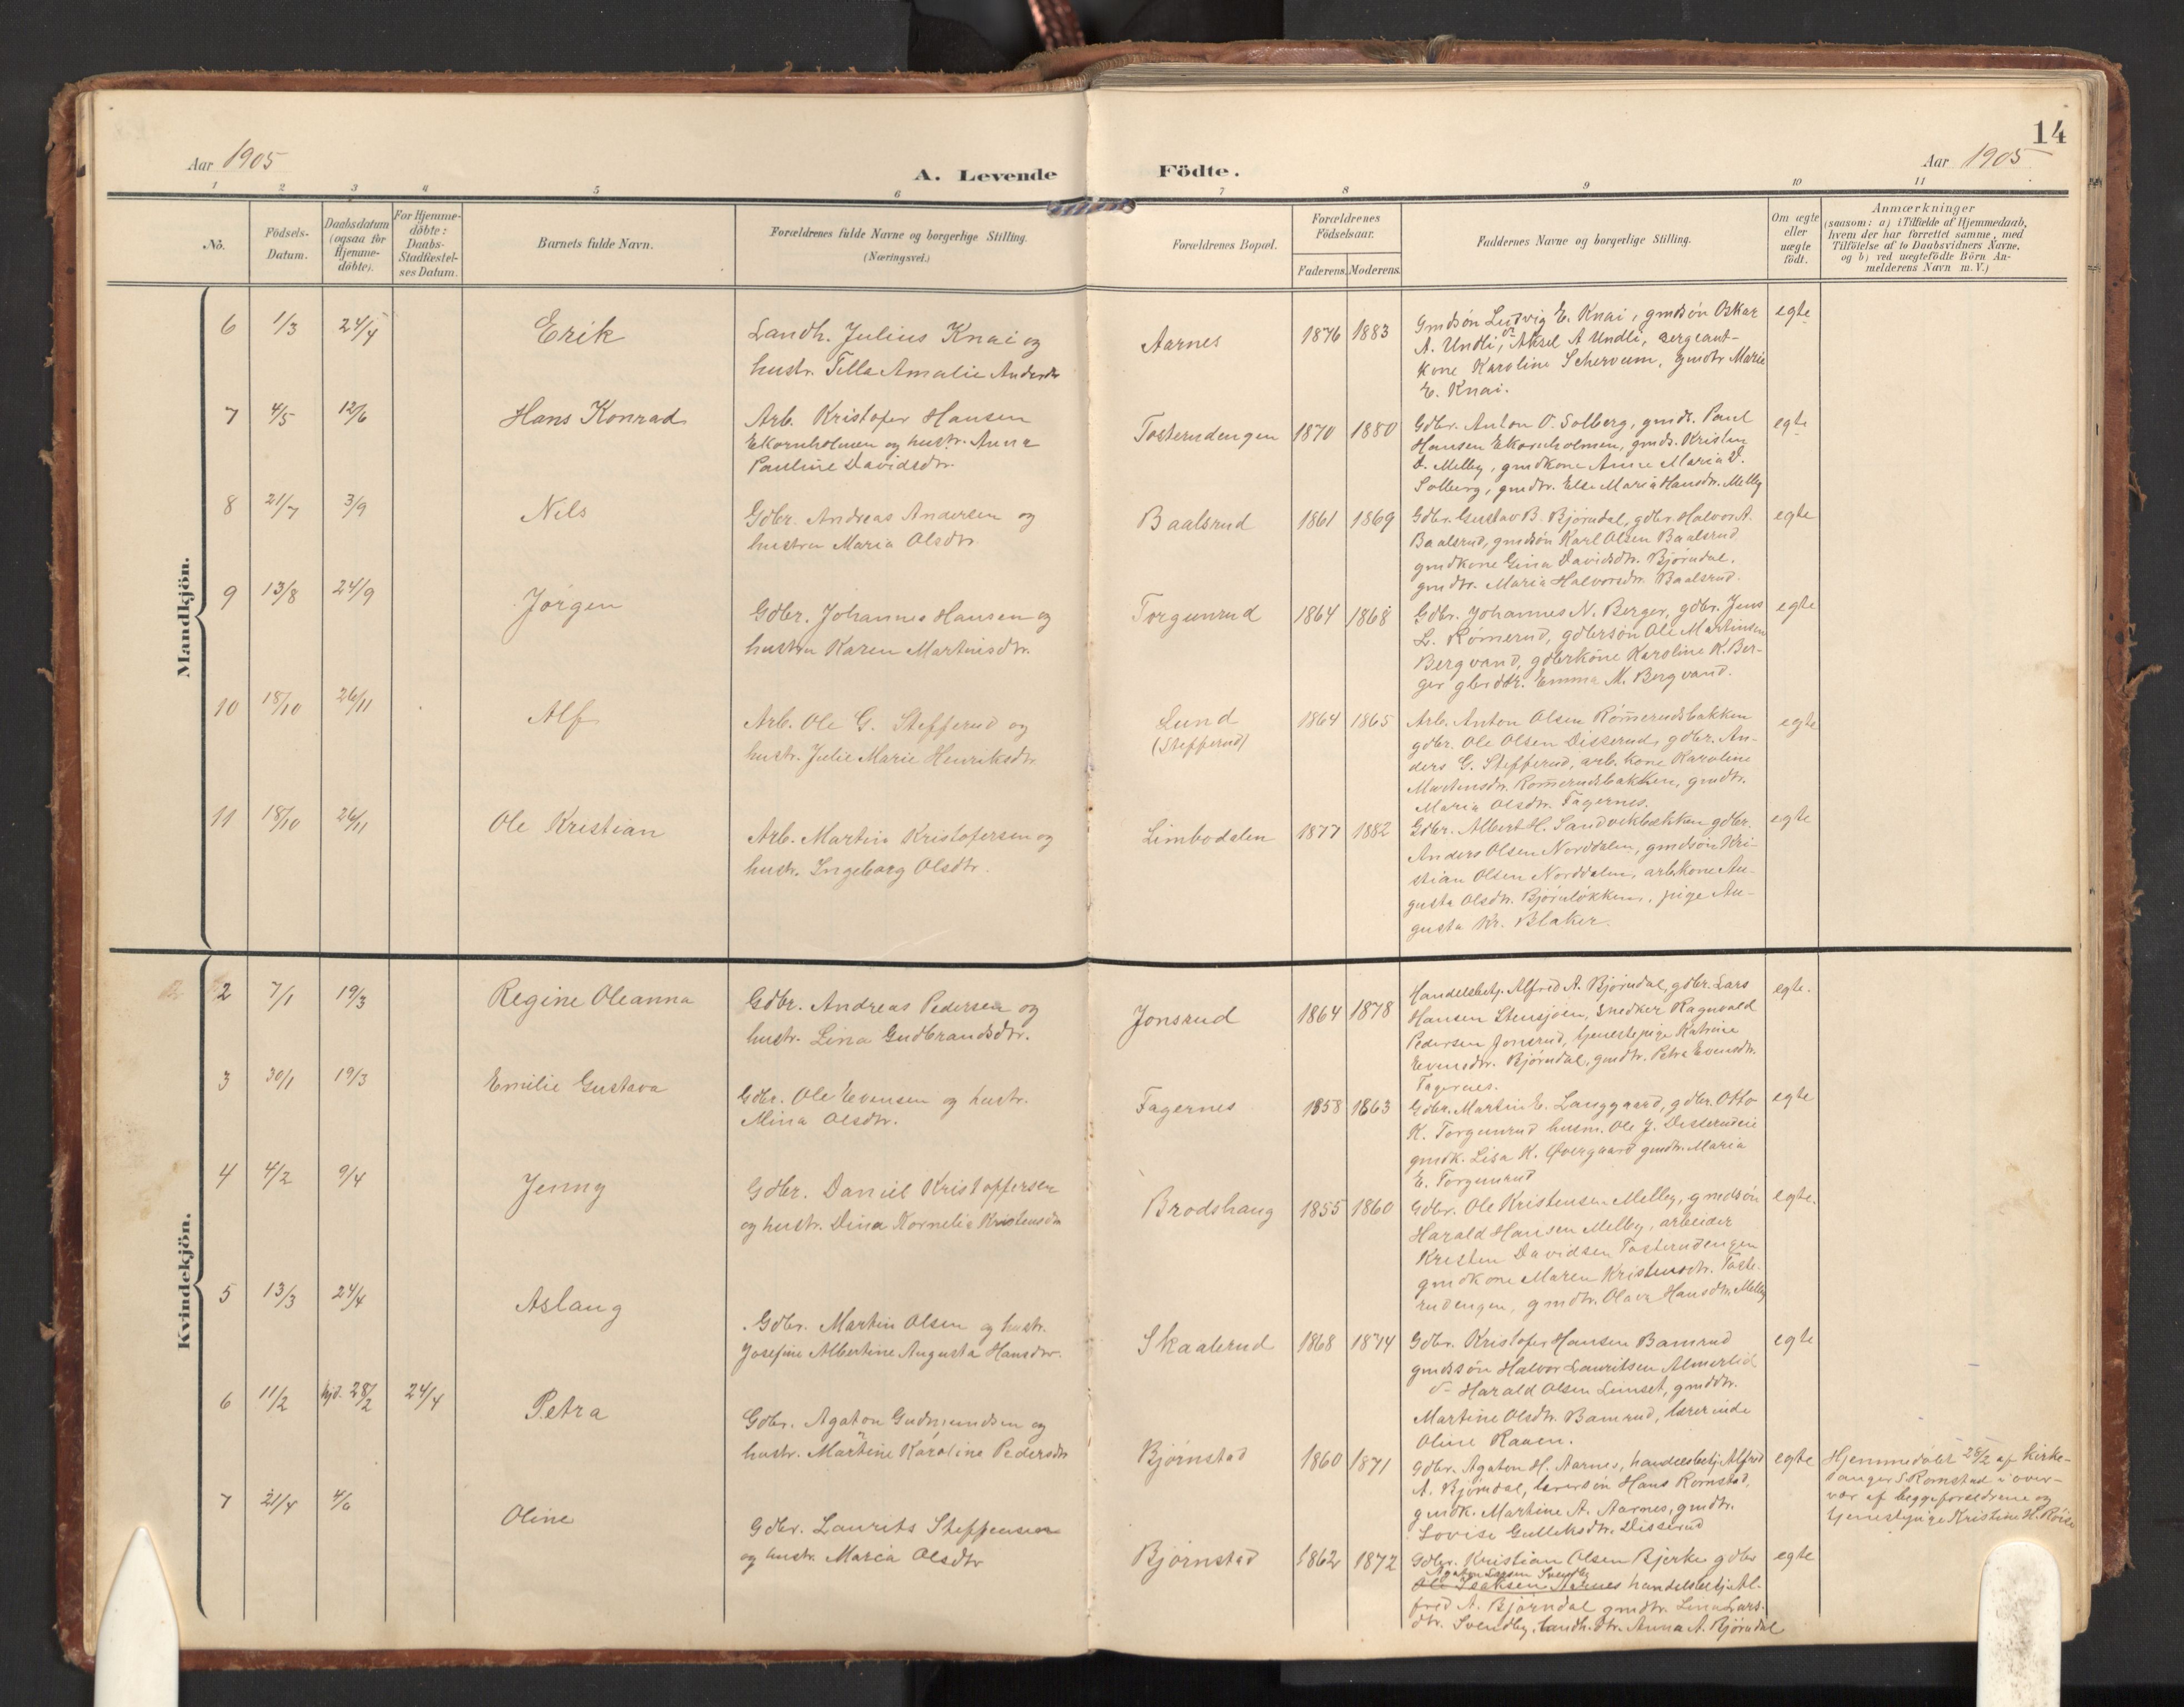 14
Aar 1905
A. Levende Födte.
Aar 1905
1 2 3 4 5 6 7 8 9 10 11
No.
Födsels-
Datum.
Daabsdatum
(ogsaa for
Hjemme-
döbte).
For Hjemme-
döbte:
Daabs-
Stadfæstel-
ses Datum.
Barnets fulde Navn.
Forældrenes fulde Navne og borgerlige Stilling.
(Næringsvei.)
Forældrenes Bopæl.
Forældrenes
Födselsaar.
Faderens. Moderens.
Faddernes Navne og borgerlige Stilling.
Om ægte
eller
uægte
födt.
Anmærkninger
(saasom: a) i Tilfælde af Hjemmedaab,
hvem der har forrettet samme, med
Tilföielse af to Daabsvidners Navne,
og b) ved uægtefödte Börn An-
melderens Navn m. V.)
Mandkjön.
6 1/3 24/4 Erik
Landh. Julius Knai og
hustr. Tilla Amalie Andersdtr
Aarnes 1876 1883
Gmdsön Ludvig E. Knai, gmdsön Oskar
A. Undli, do Aksel A Undli, sergeant-
kone Karoline Schervum, gmdtr Marie
E. Knai.
egte
7 4/5 12/6 Hans Konrad
Arb. Kristofer Hansen
Ekornholmen og hustr. Anna
Pauline Davidsdtr.
Tosterudengen 1870 1880
Gdbr. Anton O. Solberg, gmds. Paul
Hansen Ekornholmen, gmds. Kristen
D. Melby, gmdkone Anne Maria D.
Solberg, gmdtr. Else Maria Hansdtr. Melby
egte
8 21/7 3/9 Nils
Gdbr. Andreas Andersen og
hustru Maria Olsdtr.
Baalsrud 1861 1869
Gdbr. Gustav B. Bjørndal, gdbr. Halvor A.
Baalsrud, gmdsön Karl Olsen Baalsrud
gmdkone Gina Davidsdtr. Bjørndal,
gmdtr. Maria Halvorsdtr. Baalsrud.
egte
9 13/8 24/9 Jørgen
Gdbr. Johannes Hansen og
hustru Karen Martinsdtr.
Torgunrud 1864 1868
Gdbr. Johannes N. Berger, gdbr. Jens
L. Rømerud, gdbrsøn Ole Martinsen
Bergvand, gdbrkone Karoline K. Ber-
ger gbrdtr. Emma M. Bergvand.
egte
10 18/10 26/11 Alf
Arb. Ole G. Stefferud og
hustr. Julie Marie Henriksdtr.
Lund
(Stefferud)
1864 1865
Arb. Anton Olsen Rømerudsbakken
gdbr. Ole Olsen Disserud, gdbr. An-
ders G. Stefferud, arb. kone Karoline
Martinsdtr. Rømerudsbakken, gmdtr.
Maria Olsdtr. Fagernes.
egte
11 18/10 26/11 Ole Kristian
Arb. Martin Kristofersen og
hustr. Ingeborg Olsdtr.
Limbodalen 1877 1882
Gdbr. Albert H. Sandvikbakken gdbr.
Anders Olsen Norddalen, gmdsøn Kri-
stian Olsen Norddalen, arbkone Au-
gusta Olsdtr. Bjørnløkken, pige Au-
gusta Kr. Blaker.
egte
Kvindekjön.
2 7/1 19/3 Regine Oleanna
Gdbr. Andreas Pedersen og
hustr. Lina Gudbrandsdtr.
Jonsrud 1864 1878
Handelsbetj. Alfred A. Bjørndal, gdbr. Lars
Hansen Stensjøen, Snedker Ragnvald
Pedersen Jonsrud, tjenestepige Katrine
Evensdtr. Bjørndal, gmdtr. Petra Evensdtr.
Fagernes.
egte.
3 30/1 19/3 Emilie Gustava
Gdbr. Ole Evensen og hustr.
Mina Olsdtr.
Fagernes 1858 1863
Gdbr. Martin E. Langgaard, gdbr. Otto
K. Torgunrud husm. Ole J. Disserudeie
gmdk. Lisa K. Øvergaard gmdtr. Maria
E. Torgunrud
egte
4 4/2 9/4 Jenny
Gdbr. Daniel Kristoffersen
og hustr. Dina Kornelia Kristensdtr
Brodshaug 1855 1860
Gdbr. Ole Kristensen Melby, gmdsön
Harald Hansen Melby, arbeider
Kristen Davidsen Tosterudengen
gmdkone Maren Kristensdtr. Toste-
rudengen, gmdtr. Olava Hansdtr. Melby
egte.
5 13/3 24/4 Aslaug
Gdbr. Martin Olsen og hustr.
Josefine Albertine Augusta Hansdtr.
Skaalerud 1868 1874
Gdbr. Kristofer Hansen Bamrud
gmdssön Halvor Lauritsen Almerlid
do Harald Olsen Limset, gmddtr.
Martine Olsdtr. Bamrud, lærerinde
Oline Raaen.
egte
6 11/2 hjd. 28/2 24/4 Petra
Gdbr. Agaton Gudmundsen og
hustr. Martine Karoline Pedersdtr
Bjørnstad 1860 1871
Gdbr. Agaton H. Aarnes, handelsbetj. Alfred
A. Bjørndal, lærersøn Hans Romstad,
gmdk. Martine A. Aarnes, gmdtr.
Lovise Gulliksdtr. Disserud
egte
Hjemmedøbt 28/2 af Kirke-
sanger S Romstad i over-
vær af begge forældrene og
tjenestepige Kristine H. Röise
7 21/4 4/6 Oline
Gdbr. Laurits Steffensen
og hustr. Maria Olsdtr
Bjørnstad 1862 1872
Gdbr. Kristian Olsen Bjerke gdbr
Agaton Larsen Svendby
Ole Isaksen Aarnes handelsbetj. Al-
fred A. Bjørndal gmdtr. Lina Lars-
dtr. Svendby, landh.dtr. Anna A. Bjørndal
egte